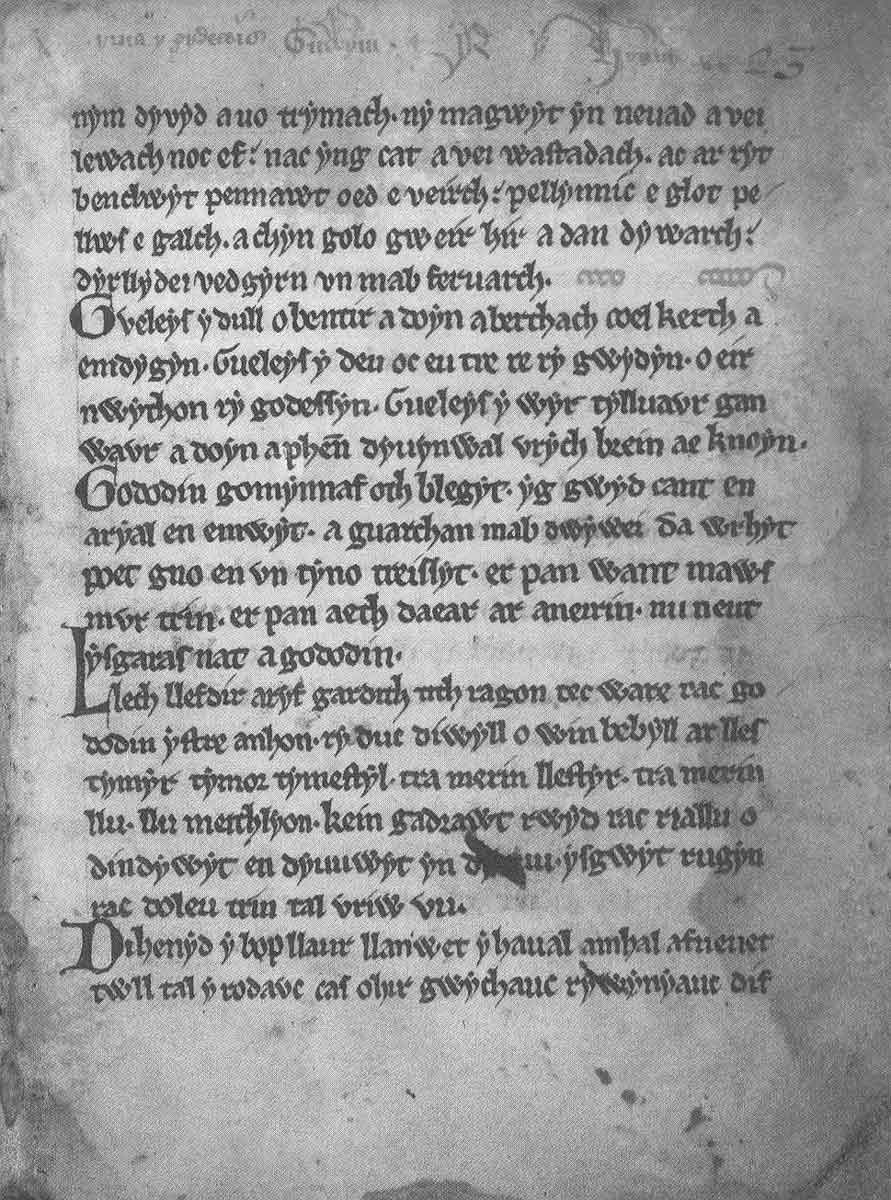 nym dyvyd a uo trymach. ny magwyt yn neuad a vei
lewach noc ef: nac yng cat a vei wastadach. ac ar ryt
benclwyt pennawt oed e veirch: pellynnic e glot pe
llws e galch. a chyn golo gweir hir a dan dywarch:
dyrllydei vedgyrn vn mab feruarch.
Gveleys y dull o bentir a doyn aberthach coel kerth a
emdygyn. Gueleys y deu oc eu tre re ry gwydyn. o eir
nwython ry godessyn. Gueleys y wyr tylluavr gan
wavr a doyn a phen̄ dyuynwal vrych brein ae knoyn.
Gododin gomynnaf oth blegyt. yg gwyd cant en
aryal en emwyt. a guarchan mab dwywei da wrhyt
poet gno en vn tyno treissyt. er pan want maws
mvr trin. er pan aeth daear ar aneirin. nu neut
ysgaras nat a gododin.
Llech llefdir aryf gardith tith ragon tec ware rac go
dodin ystre anhon. ry duc diwyll o win bebyll ar lles
tymyr tymor tymestyl. tra merin llestyr. tra merin
llu. llu meithlyon. kein gadrawt rwyd rac riallu o
dindywyt en dyuuwyt yn ysgwyt rugyn
rac doleu trin tal vriw vu.
Dihenyd y bop llaur llanw et y haual amhal afneuet
twll tal y rodavc cas ohir gwychauc rywynyauc dif